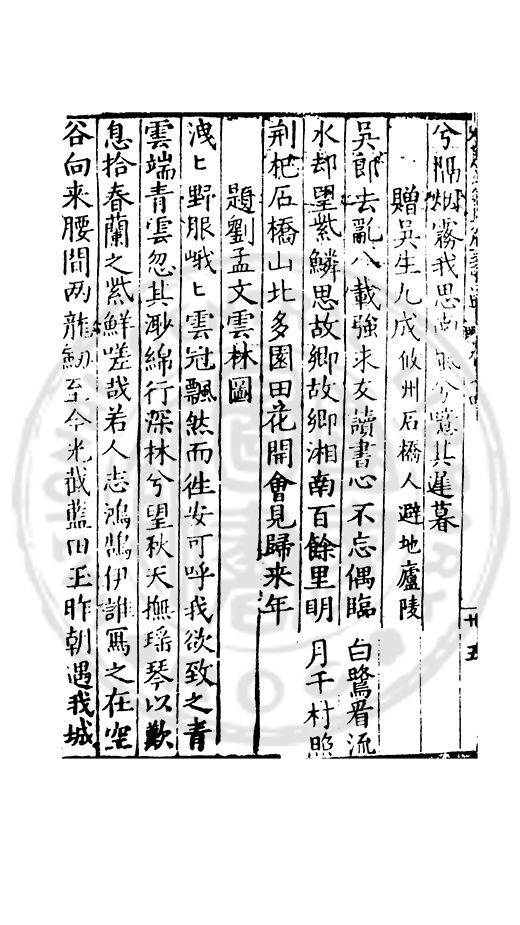 兮隔烟霧我思兮其遲暮
贈吳生九成攸州石橋人避地廬陵
吳郎去亂八載強求友讀書心不忘偶臨白鷺看流
水却望紫鱗思故鄉故鄉湘南百餘里明月千村照
荆杞石橋山北多園田花開會見歸来年
題劉孟文雲林圖
洩〻野服峨〻雲冠飄然而徃安可呼我欲致之青
雲端青雲忽其渺綿行深林兮望秋天撫瑶琴以歎
息拾春蘭之紫鮮嗟哉若人志鴻鵠伊誰寫之在空
谷向来腰間两龍劒至今光截藍田玉昨朝遇我城
廿五